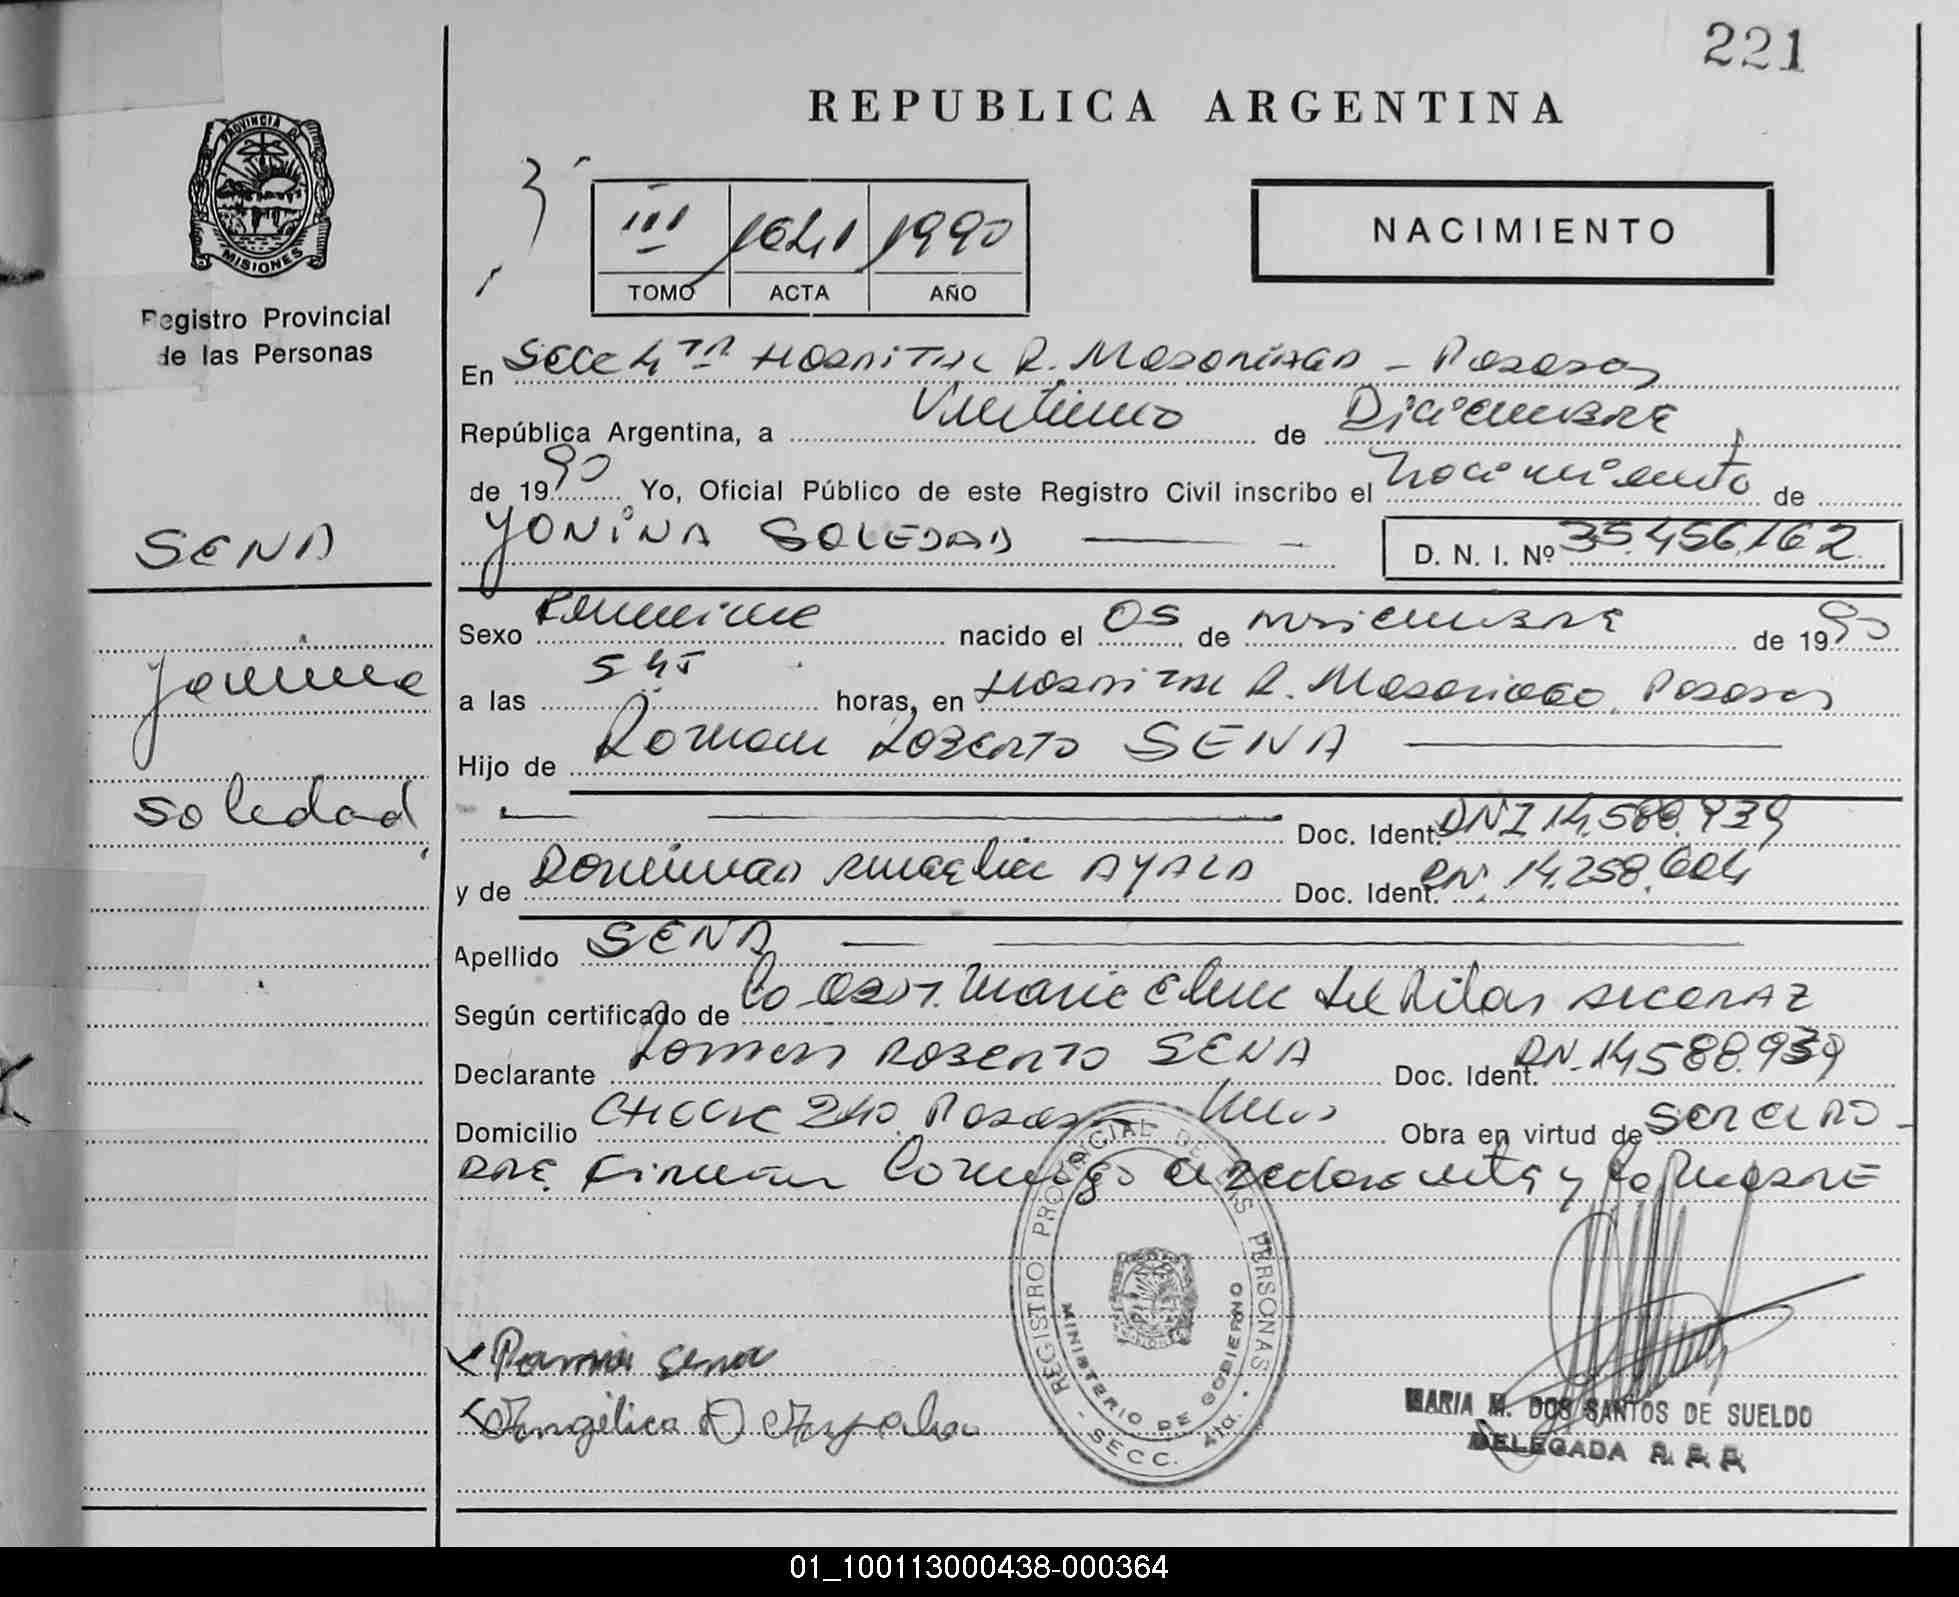 221
REPUBLICA ARGENTINA
PROVINCIA DE
MISIONES
Registro Provincial
de las Personas
III 1021 1990
TOMO ACTA AÑO
NACIMIENTO
En Secc 4ta Hospital R. Madariaga - Posadas
República Argentina, a Veintiuno de Diciembre
de 1990 Yo, Oficial Público de este Registro Civil inscribo el Nacimiento de
YONINA SOLEDAD D. N. I. Nº 35.456.162
SENA
Sexo Femenino nacido el 05 de Diciembre de 1990
Yanina
a las 5 45 horas, en Hospital R. Madariaga. Posadas
Hijo de Roman Roberto SENA
Soledad
Doc. Ident. DNI 14.588.939
y de Dominga Angelica AYALA Doc. Ident. DN. 14.258.604
Apellido SENA
Según certificado de la Obst. Maria Elena del Pilar
Declarante Roman Roberto SENA Doc. Ident. DN. 14588.939
Domicilio 240. Posadas Mnes Obra en virtud de ser el PA-
DRE. Firman conmigo el declarante y la Madre
REGISTRO PROVINCIAL DE LAS PERSONAS
MINISTERIO DE GOBIERNO
- SECC. 4ta. -
Sena
Angélica D Ayala
MARIA M. DOS SANTOS DE SUELDO
DELEGADA
01_100113000438-000364